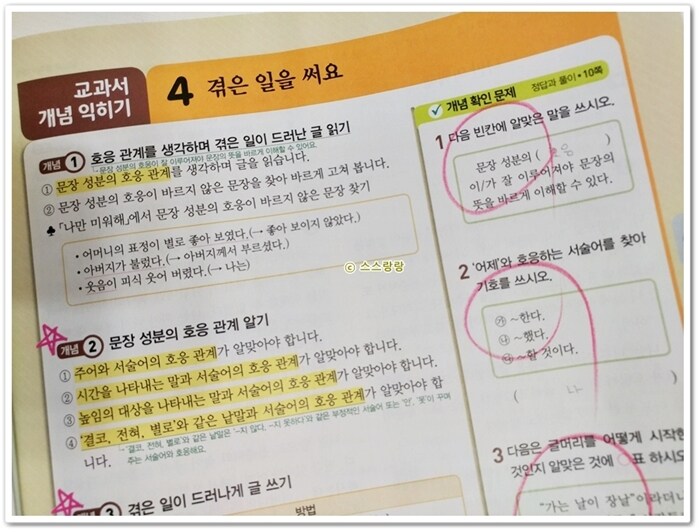 교과서
개념 익히기
4 겪은 일을 써요
개념 1 호응 관계를 생각하며 겪은 일이 드러난 글 읽기
문장 성분의 호응이 잘 이루어져야 문장의 뜻을 바르게 이해할 수 있어요.
① 문장 성분의 호응 관계를 생각하며 글을 읽습니다.
② 문장 성분의 호응이 바르지 않은 문장을 찾아 바르게 고쳐 봅니다.
♣ 「나만 미워해」에서 문장 성분의 호응이 바르지 않은 문장 찾기
• 어머니의 표정이 별로 좋아 보였다.(→ 좋아 보이지 않았다.)
• 아버지가 불렀다.(→ 아버지께서 부르셨다.)
• 웃음이 피식 웃어 버렸다.(→ 나는)
ⓒ 스스랑랑
개념 2 문장 성분의 호응 관계 알기
① 주어와 서술어의 호응 관계가 알맞아야 합니다.
② 시간을 나타내는 말과 서술어의 호응 관계가 알맞아야 합니다.
③ 높임의 대상을 나타내는 말과 서술어의 호응 관계가 알맞아야 합니다.
④ '결코, 전혀, 별로'와 같은 낱말과 서술어의 호응 관계가 알맞아야 합
니다.
'결코, 전혀, 별로'와 같은 낱말은 '-지 않다, -지 못하다'와 같은 부정적인 서술어 또는 '안', '못'이 꾸며
주는 서술어와 호응해요.
3 겪은 일이 드러나게 글 쓰기
방법
개념 확인 문제
정답과 풀이 • 10쪽
1 다음 빈칸에 알맞은 말을 쓰시오.
문장 성분의 ( 호응 )
이/가 잘 이루어져야 문장의
뜻을 바르게 이해할 수 있다.
2 '어제'와 호응하는 서술어를 찾아
기호를 쓰시오.
㉮ ~한다.
㉯ ~했다.
㉰ ~할 것이다.
( 나
3 다음은 글머리를 어떻게 시작한
것인지 알맞은 것에 ○표 하시오
"가는 날이 장날"이라더니